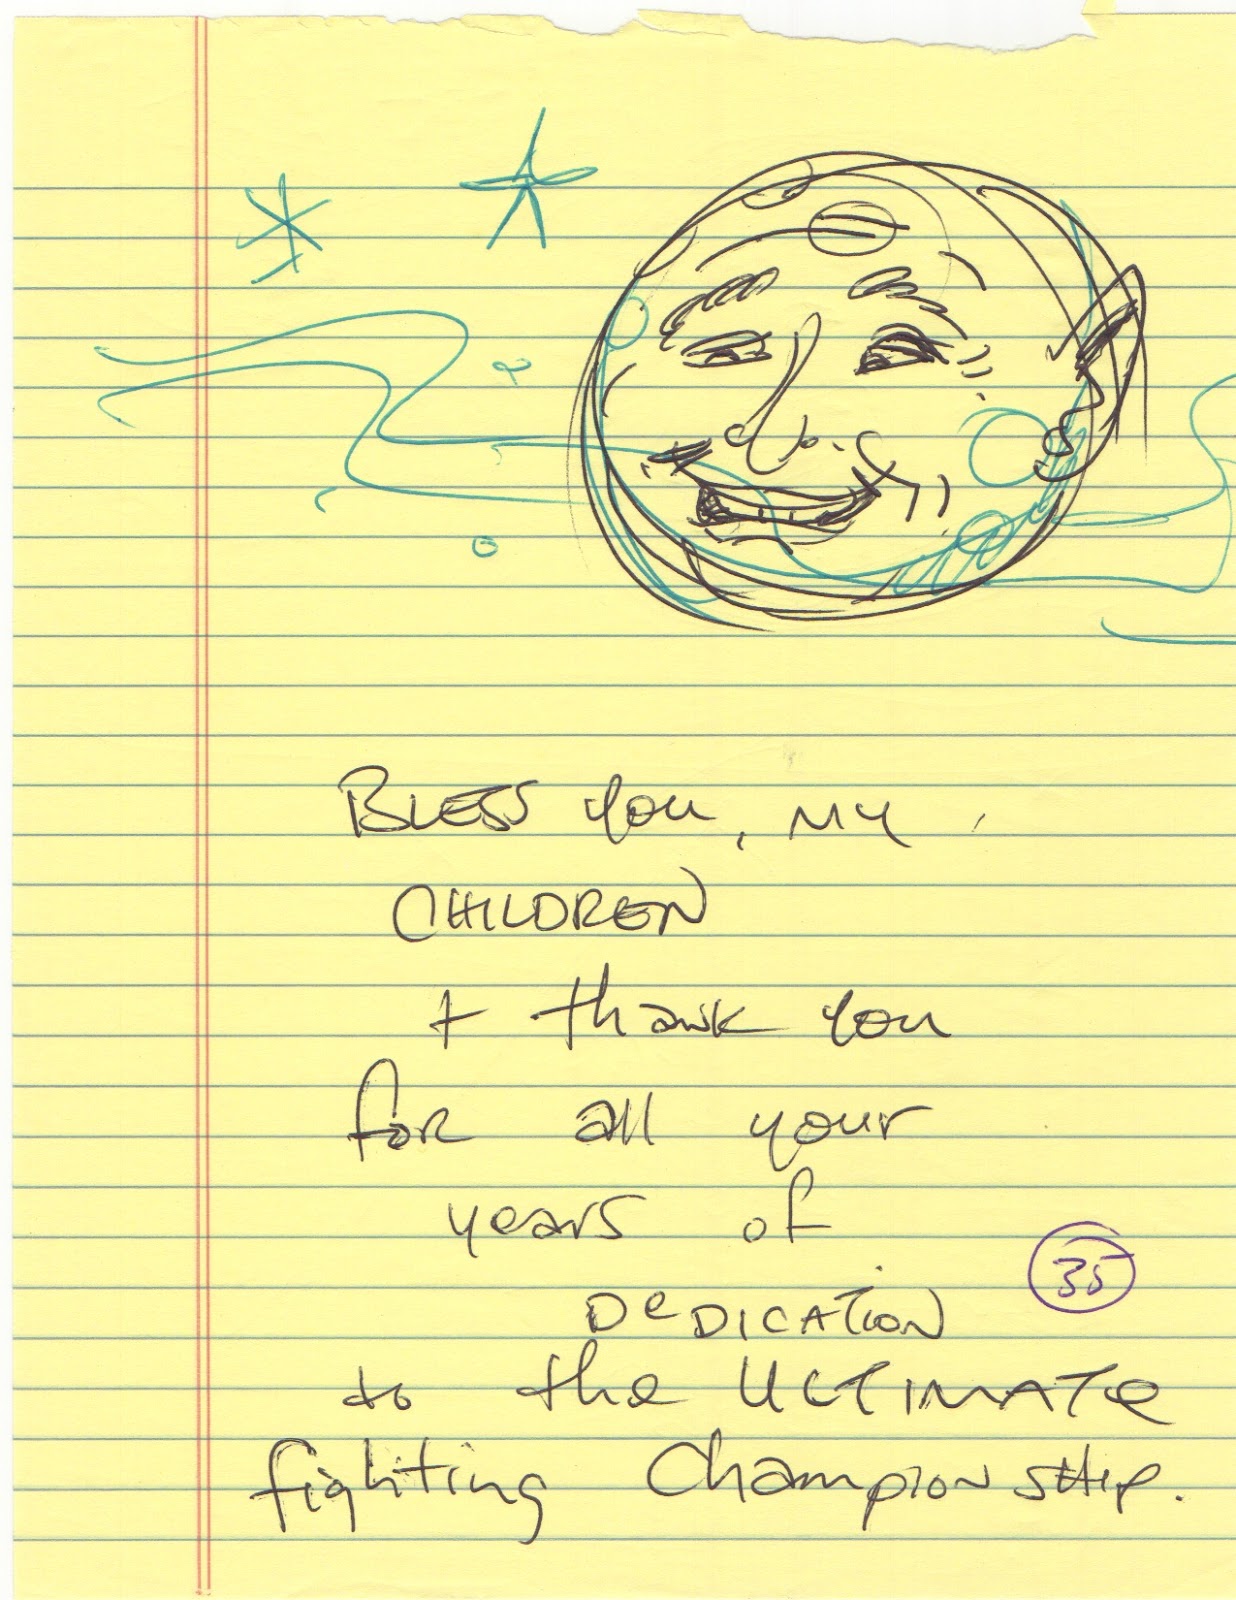 BLESS you, MY
CHILDREN
+ thank you
for all your
years of
35
DeDICATION
to the ULTIMATe
fighting ChampionSHIP.